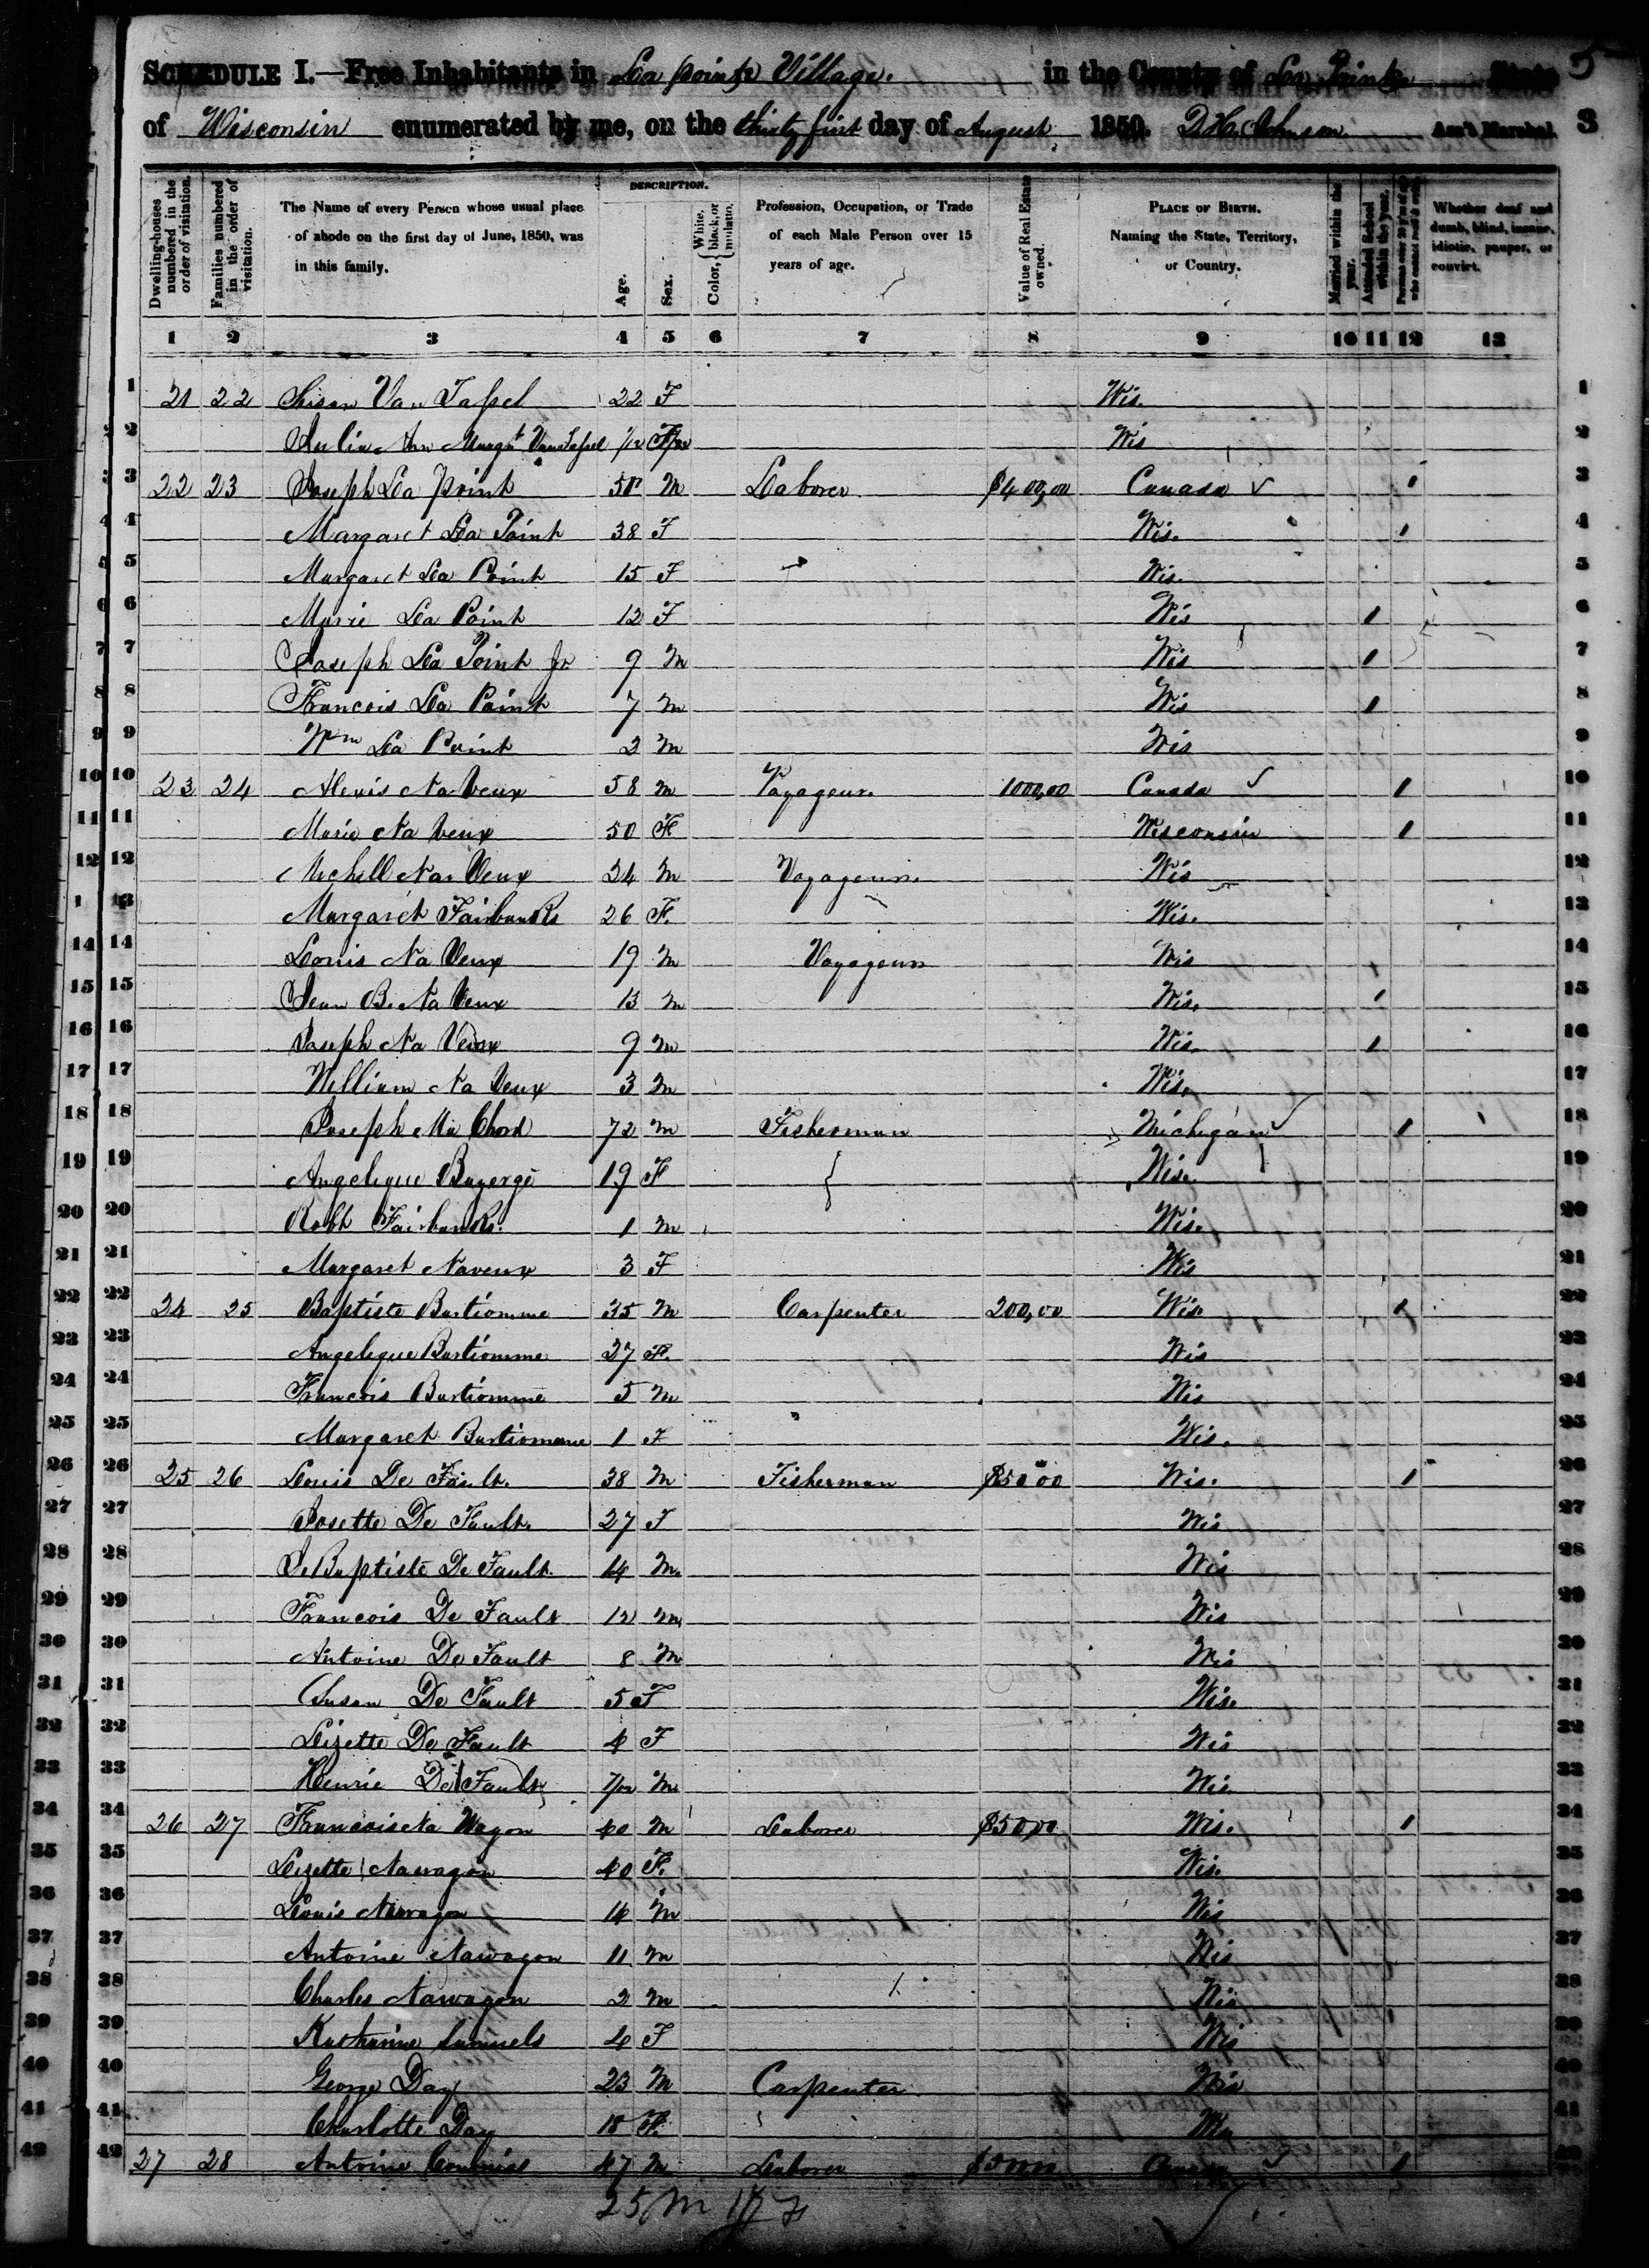 5
SCHEDULE I.—Free Inhabitants in La pointe Village. in the County of La Pointe State
of Wisconsin enumerated by me, on the thirty first day of August 1850. Johnson Ass't Marshal. 3
Dwelling-houses numbered in the order of visitation. Families numbered in the order of visitation. The Name of every Person whose usual place of abode on the first day of June, 1850, was in this family. DESCRIPTION. Age. Sex. Color, { White, black, or mulatto. Profession, Occupation, or Trade of each Male Person over 15 years of age. Value of Real Estate owned. PLACE OF BIRTH. Naming the State, Territory, or Country. Married within the year. Attended School within the year. Persons over 20 y'rs of age who cannot read & write. Whether deaf and dumb, blind, insane, idiotic, pauper, or convict.
1 2 3 4 5 6 7 8 9 10 11 12 13
1 21 22 Susan Van Tassel 22 F Wis. 1
2 Julia Ann Margt Van Tassel F Wis 2
3 22 23 Joseph La point M Laborer $400,00 Canada 1 3
4 Margaret La Point 38 F Wis. 1 4
5 Margaret La Point 15 F Wis. 5
6 Marie La Point 12 F Wis 1 6
7 Joseph La Point Jr 9 M Wis 1 7
8 Francois La Point 7 M Wis 1 8
9 Wm La Point 2 M Wis 9
10 23 24 Alexis Na Veux 58 M Voyageur. 1000,00 Canada 1 10
11 Marie Na Veux 50 F Wisconsin 1 11
12 Michell Na Veux 24 M Voyageur. Wis 12
13 Margaret Fairbanks 26 F. Wis. 13
14 Louis Na Veux 19 M Voyageur Wis 14
15 Jean B. Na Veux 13 M Wis. 1 15
16 Joseph Na Veux 9 M Wis. 1 16
17 William Na Veux 3 M Wis. 17
18 Joseph Mi Chord 72 M Fisherman Michigan 1 18
19 Angelique 19 F Wis. 19
20 Robt Fairbanks. 1 M Wis. 20
21 Margaret Naveux 3 F Wis 21
22 24 25 Baptiste Bustiomme 35 M Carpenter 200,00 Wis 1 22
23 Angelique Bustiomme 27 F. Wis 23
24 Francois Bustiomme 5 M Wis 24
25 Margaret Bustiomme 1 F Wis. 25
26 25 26 Louis De Fault. 38 M Fisherman $50 00 Wis. 1 26
27 Josette De Fault. 27 F Wis 27
28 J. Baptiste De Fault. 14 M. Wis 28
29 Francois De Fault 12 M Wis 29
30 Antoine De Fault 8 M Wis 30
31 Susan De Fault 5 F Wis. 31
32 Lizette De Fault 4 F Wis 32
33 Henrie De Fault 7/12 M Wis. 33
34 26 27 Francois Na Wagon 40 M Laborer $50,00 Wis. 1 34
35 Lizette Nawagon 40 F. Wis. 35
36 Louis Nawagon M Wis 36
37 Antoine Nawagon 11 M Wis 37
38 Charles Nawagon 2 M Wis 38
39 Katharine Samuels 4 F Wis 39
40 George Day 23 M Carpenter Wis 40
41 Charlotte Day 18 F. Wis 41
42 27 28 Antoine 47 M Laborer Canada 1 42
25 M 17 F